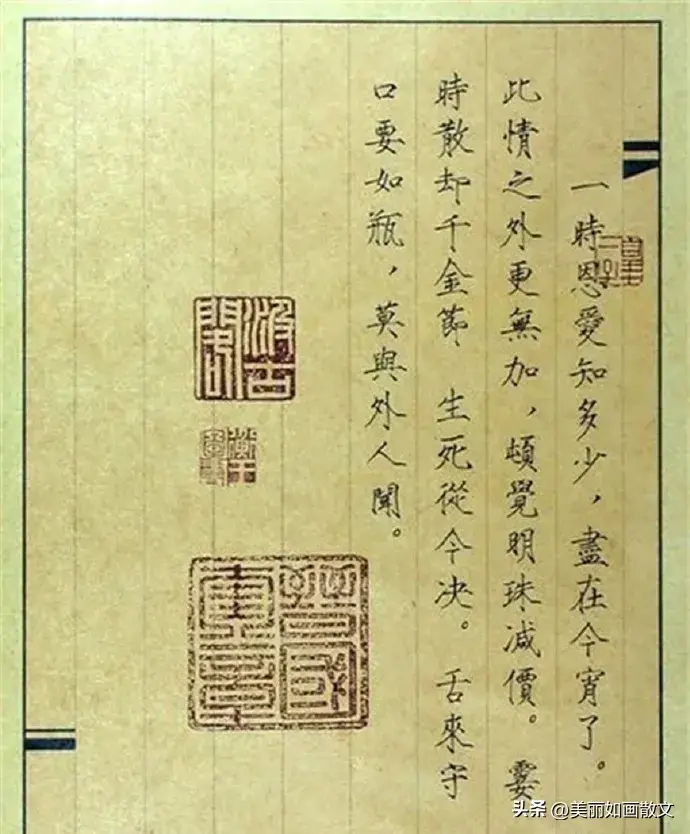 一時恩愛知多少，盡在今宵了。
此情之外更無加，頓覺明珠减價。霎
時散却千金節 生死從今决。舌來守
口要如瓶，莫與外人聞。
头条 @美丽如画散文